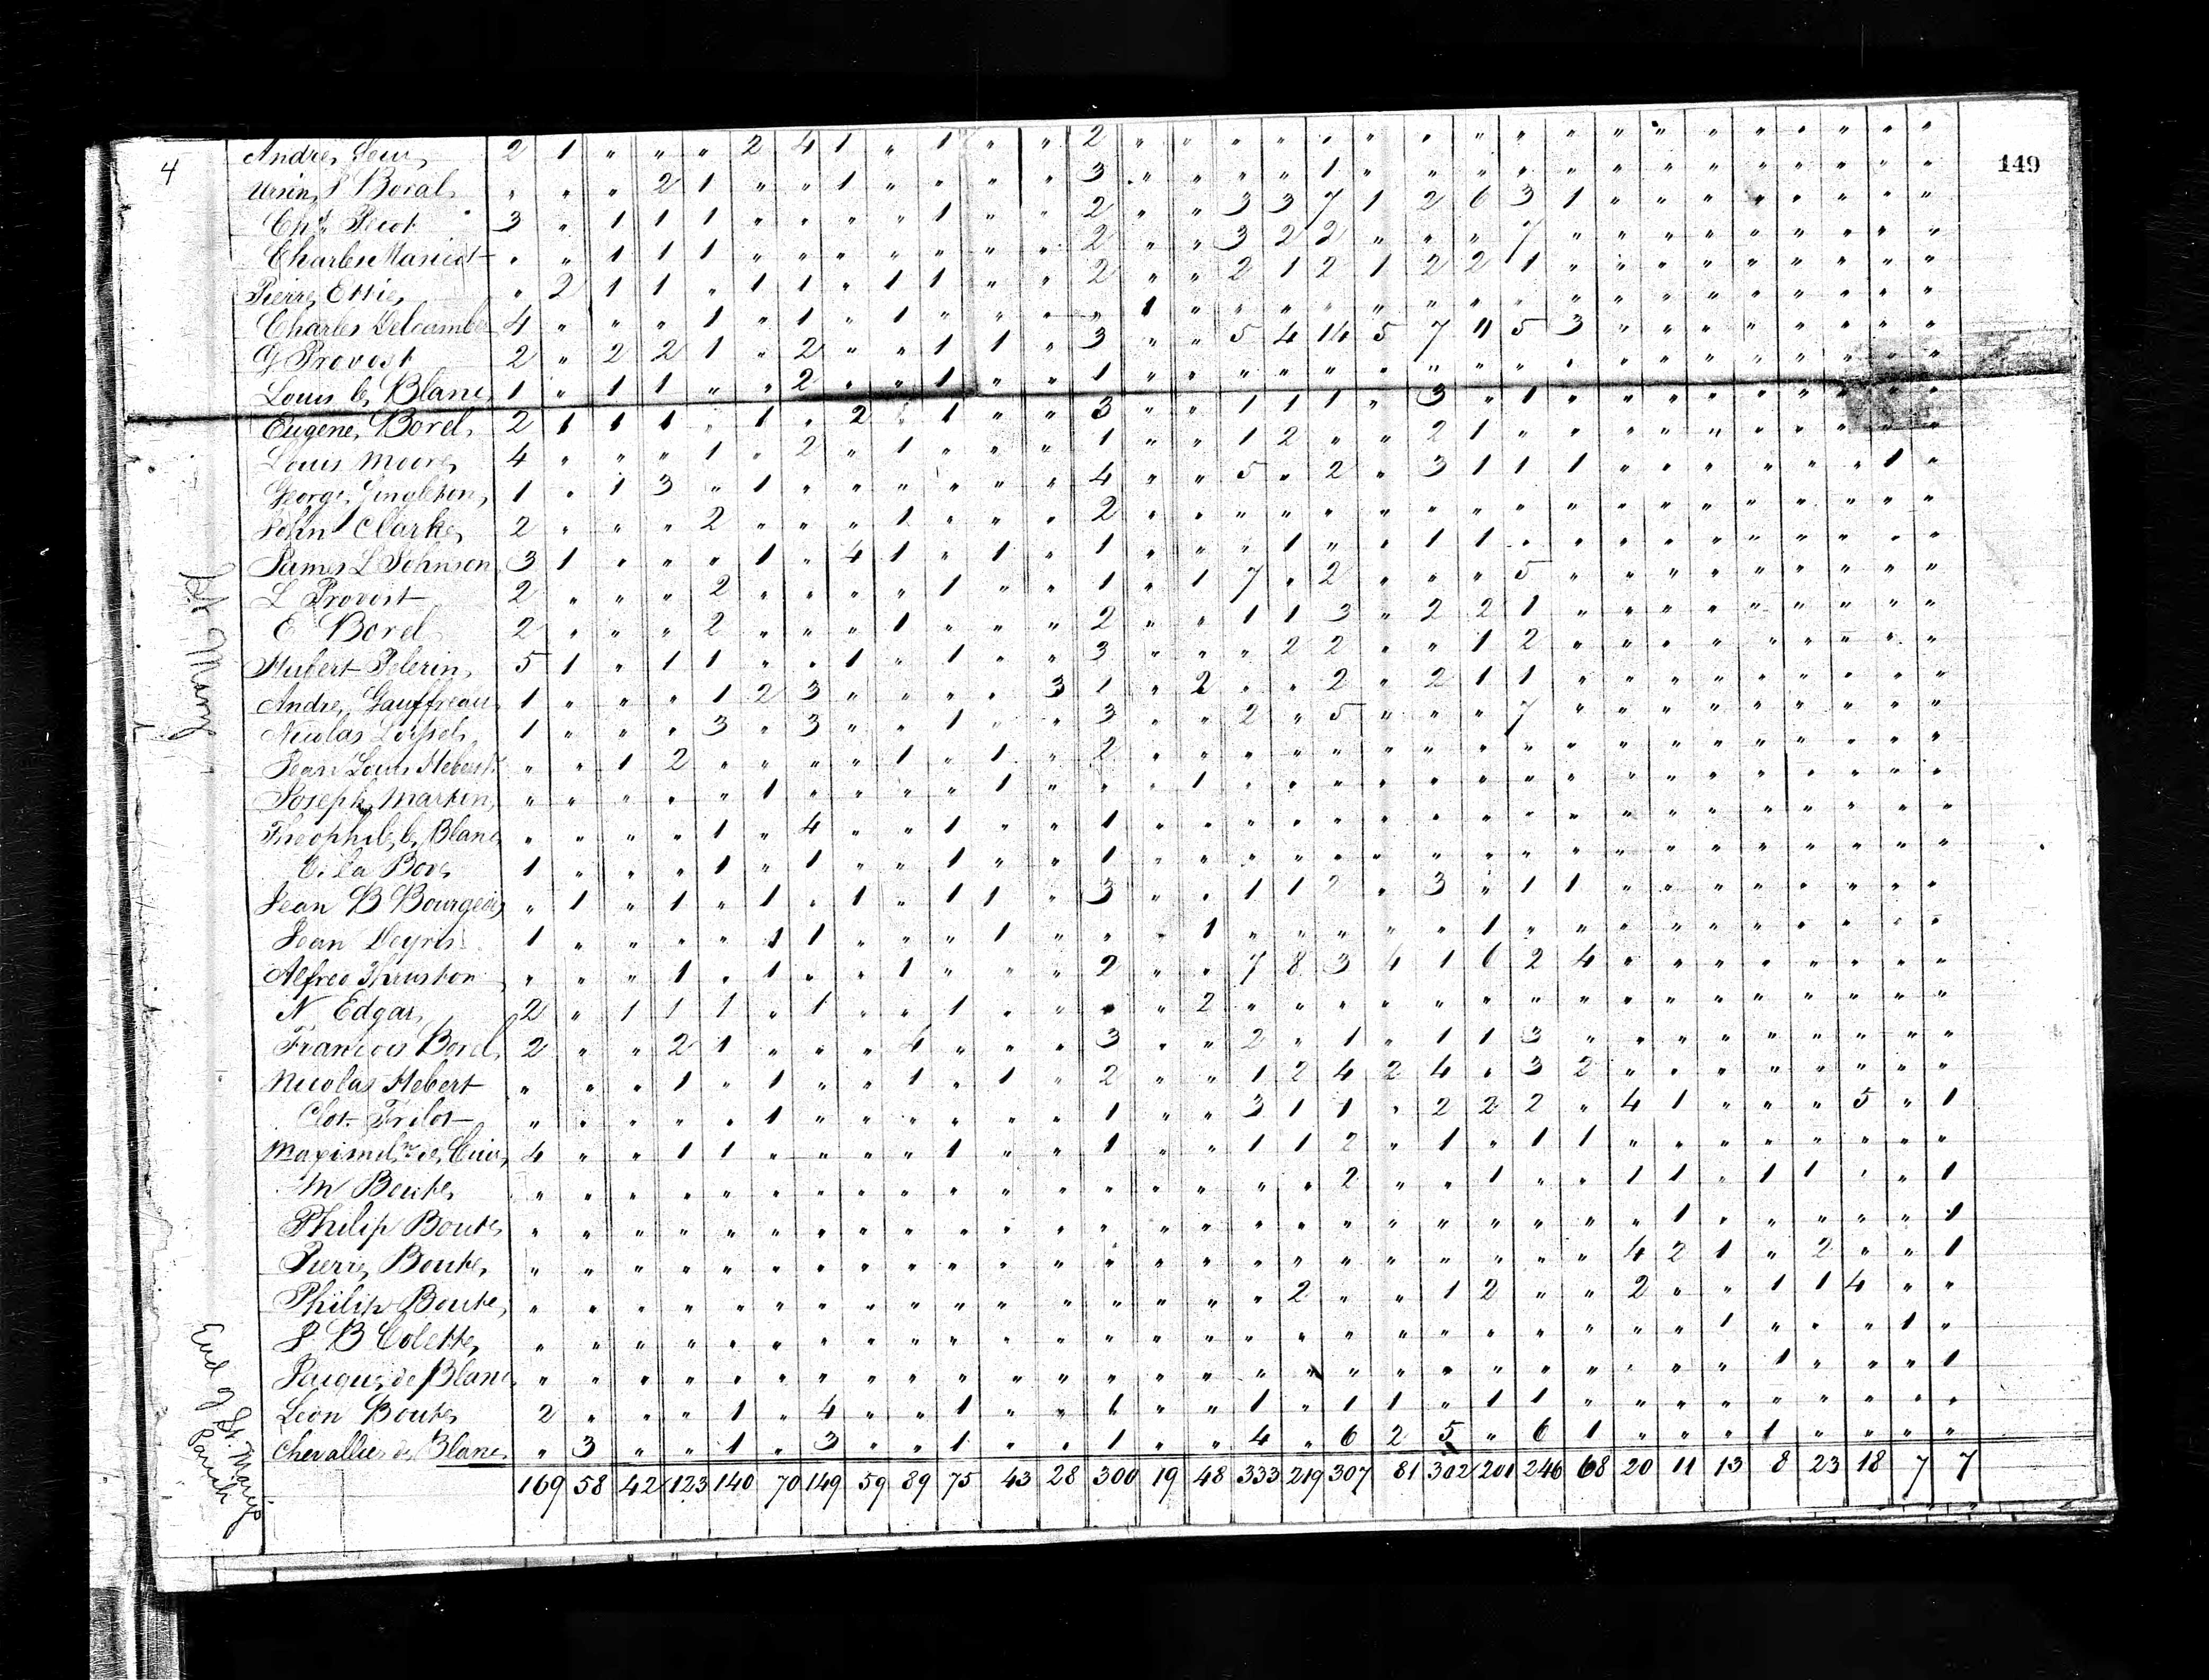 4
149
Andre, Seur, 2 1 " " " 2 4 1 " 1 " " 2 " " " " " " " " " " " " " " " " " "
Ursin, P Boral, " " " 2 1 " " 1 " " " " 3 " " " " 1 " " " " " " " " " " " " "
Chs. Picot 3 " 1 1 1 " " " " 1 " " 2 " " 3 3 7 1 2 6 3 1 " " " " " " " "
Charles " " 1 1 1 " " " " " " " 2 " " 3 2 2 " " " 7 " " " " " " " " "
Pierre, " 2 1 1 " 1 1 " 1 1 " " 2 " " 2 1 2 1 2 2 1 " " " " " " " " "
Charles 4 " " " 1 " 1 " 1 " " " " 1 " " " " " " " " " " " " " " " " "
G Provost 2 " 2 2 1 " 2 " " 1 1 " 3 " " 5 4 14 5 7 11 5 3 " " " " " " " "
Louis le, Blanc, 1 " 1 1 " " 2 " " 1 " " 1 " " " " " " " " " " " " " " " " " "
Eugene, Borel, 2 1 1 1 " 1 " 2 " 1 " " 3 " " 1 1 1 " 3 " 1 " " " " " " " " "
Louis Moore, 4 " " " 1 " 2 " 1 " " " 1 " " 1 2 " " 2 1 " " " " " " " " " "
George, Singleton, 1 " 1 3 " 1 " " " " " " 4 " " 5 " 2 " 3 1 1 1 " " " " " " 1 "
John Clarke, 2 " " " 2 " " " 1 " " " 2 " " " " " " " " " " " " " " " " " "
James L Johnson, 3 1 " " " 1 " 4 1 " 1 " 1 " " " 1 " " 1 1 " " " " " " " " " "
L Provost 2 " " " 2 " " " " 1 " " 1 " 1 7 " 2 " " " 5 " " " " " " " " "
E Borel 2 " " " 2 " " " 1 " " " 2 " " 1 1 3 " 2 2 1 " " " " " " " " "
Hubert Pelerin, 5 1 " 1 1 " " 1 " 1 " " 3 " " " 2 2 " " 1 2 " " " " " " " " "
Andre, Gauffreau 1 " " " 1 2 3 " " " " 3 1 " 2 " " 2 " 2 1 1 " " " " " " " " "
Nicolas 1 " " " 3 " 3 " " 1 " " 3 " " 2 " 5 " " " 7 " " " " " " " " "
Jean Louis Hebert " " 1 2 " " " " 1 " 1 " 2 " " " " " " " " " " " " " " " " " "
Joseph, Martin, " " " " " 1 " " " " 1 " " " 1 " " " " " " " " " " " " " " " "
Theophile, le, Blanc, " " " " 1 " 4 " " 1 " " 1 " " " " " " " " " " " " " " " " " "
1 " " " 1 " 1 " " 1 " " 1 " " " " " " " " " " " " " " " " " "
Jean B Bourgeois " 1 " 1 " 1 " 1 " 1 1 " 3 " " 1 1 2 " 3 " 1 1 " " " " " " " "
Jean Deyris 1 " " " " 1 1 " " " 1 " " " 1 " " " " " 1 " " " " " " " " " "
Alfred Thruston " " " 1 " 1 " " 1 " " " 2 " " 7 8 3 4 1 6 2 4 " " " " " " " "
N Edgar, 2 " 1 1 1 " 1 " " 1 " " " " 2 " " " " " " " " " " " " " " " "
Francois Borel, 2 " " 2 1 " " " 4 " " " 3 " " 2 " 1 " 1 1 3 " " " " " " " " "
Nicolas Hebert " " " 1 " 1 " " 1 " 1 " 2 " " 1 2 4 2 4 " 3 2 " " " " " " " "
Clot. Frilot " " " " " 1 " " " " " " 1 " " 3 1 1 " 2 2 2 " 4 1 " " " 5 " 1
4 " " 1 1 " " " " 1 " " 1 " " 1 1 2 " 1 " 1 1 " " " " " " " "
M Boute, " " " " " " " " " " " " " " " " " 2 " " 1 " " 1 1 " 1 1 " " 1
Philip Boute, " " " " " " " " " " " " " " " " " " " " " " " " 1 " " " " " 1
Pierre, Boute, " " " " " " " " " " " " " " " " " " " " " " " 4 2 1 " 2 " " 1
Philip Boute, " " " " " " " " " " " " " " " " 2 " " 1 2 " " 2 " " 1 1 4 " "
J. B Colette, " " " " " " " " " " " " " " " " " " " " " " " " " 1 " " " 1 "
Jaque, de Blanc, " " " " " " " " " " " " " " " " " " " " " " " " " " 1 " " " 1
Leon Boute, 2 " " " 1 " 4 " " 1 " " 1 " " 1 " 1 1 " 1 1 " " " " " " " " "
Chevallier de, Blanc, " 3 " " 1 " 3 " " 1 " " 1 " " 4 " 6 2 5 " 6 1 " " " 1 " " " "
169 58 42 123 140 70 149 59 89 75 43 28 300 19 48 333 219 307 81 302 201 246 68 20 11 13 8 23 18 7 7
St. Mary
End of St. Mary's
Parish